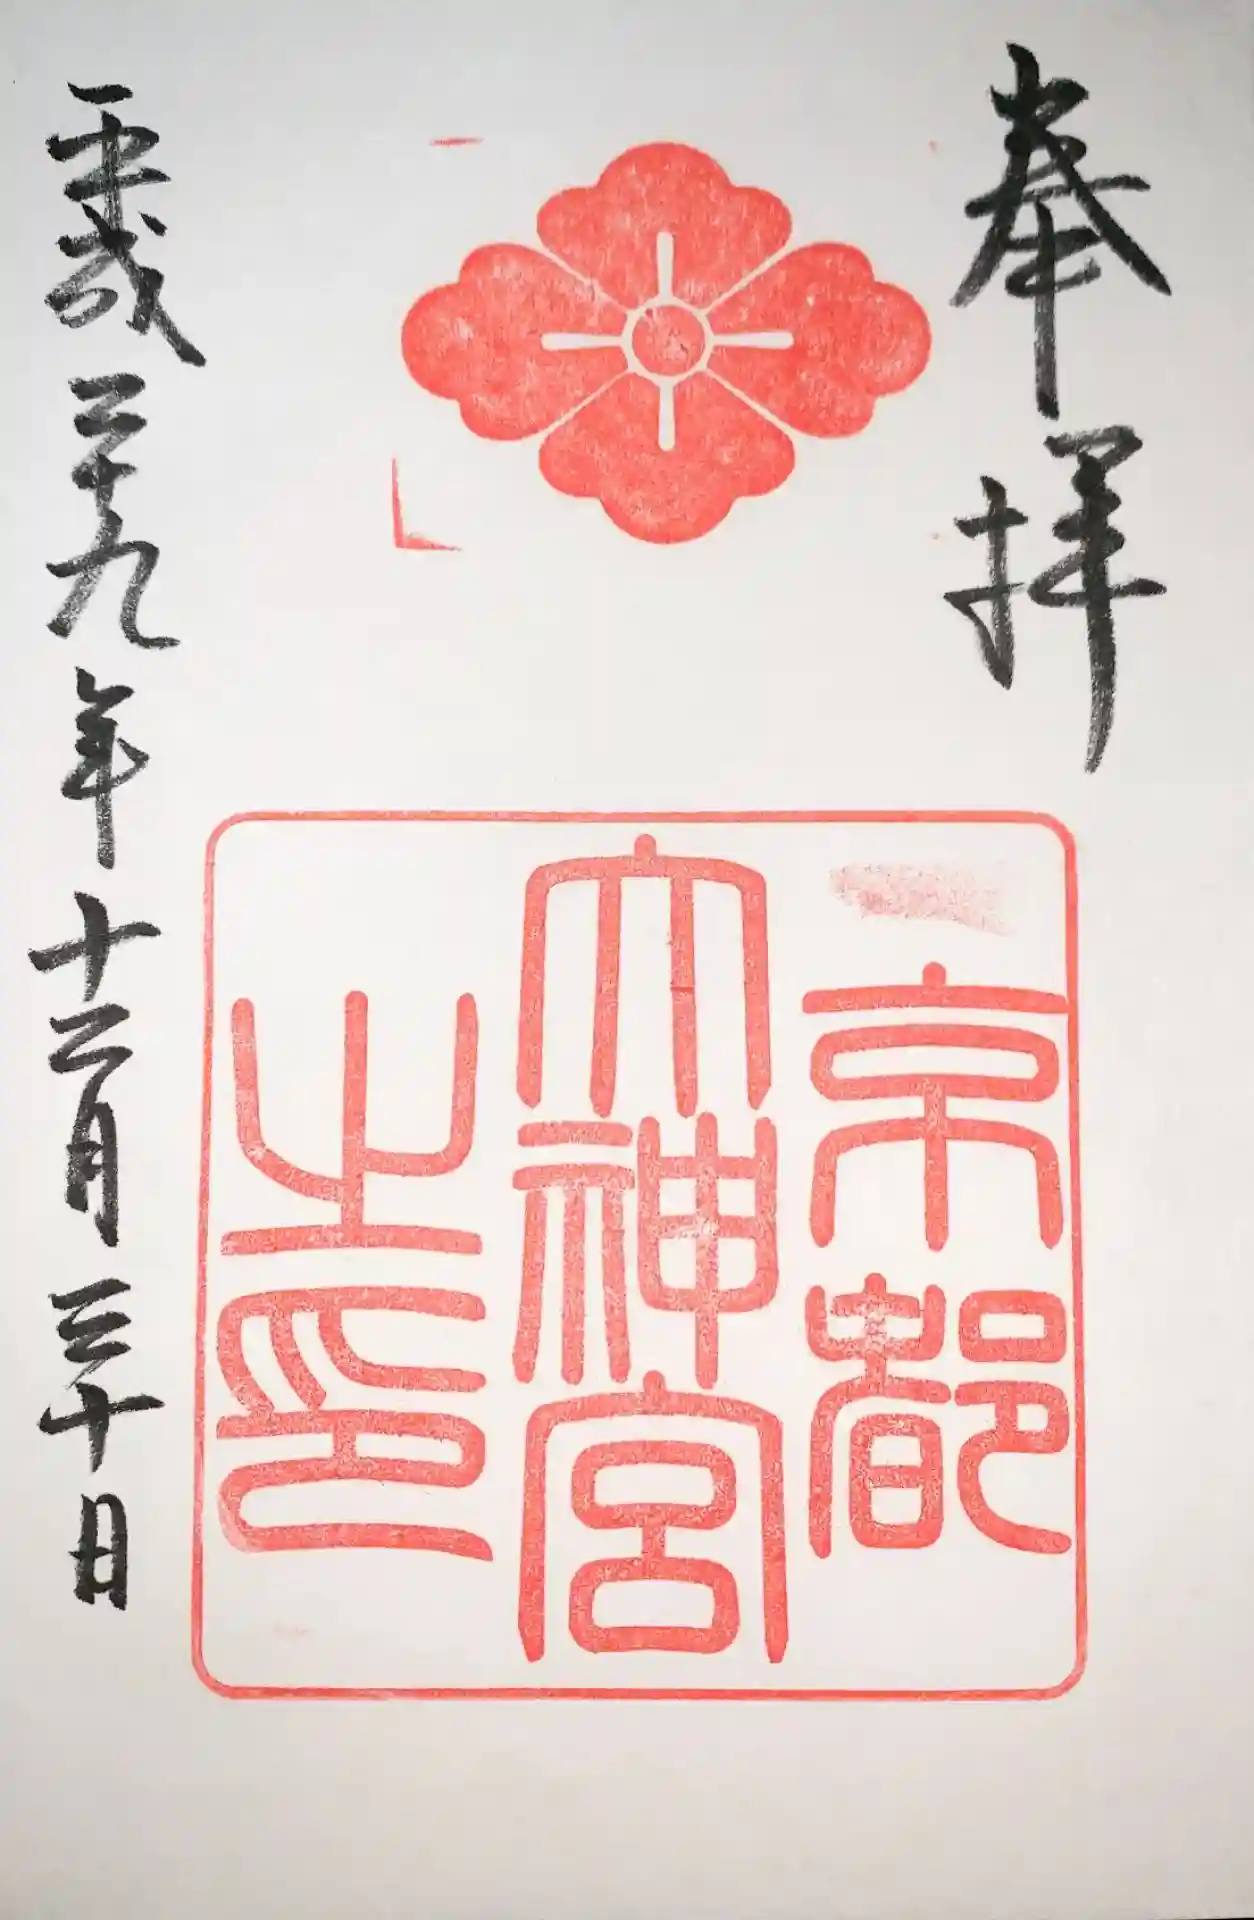 奉拝
京都
大神宮
之印
平成二十九年十二月三十日